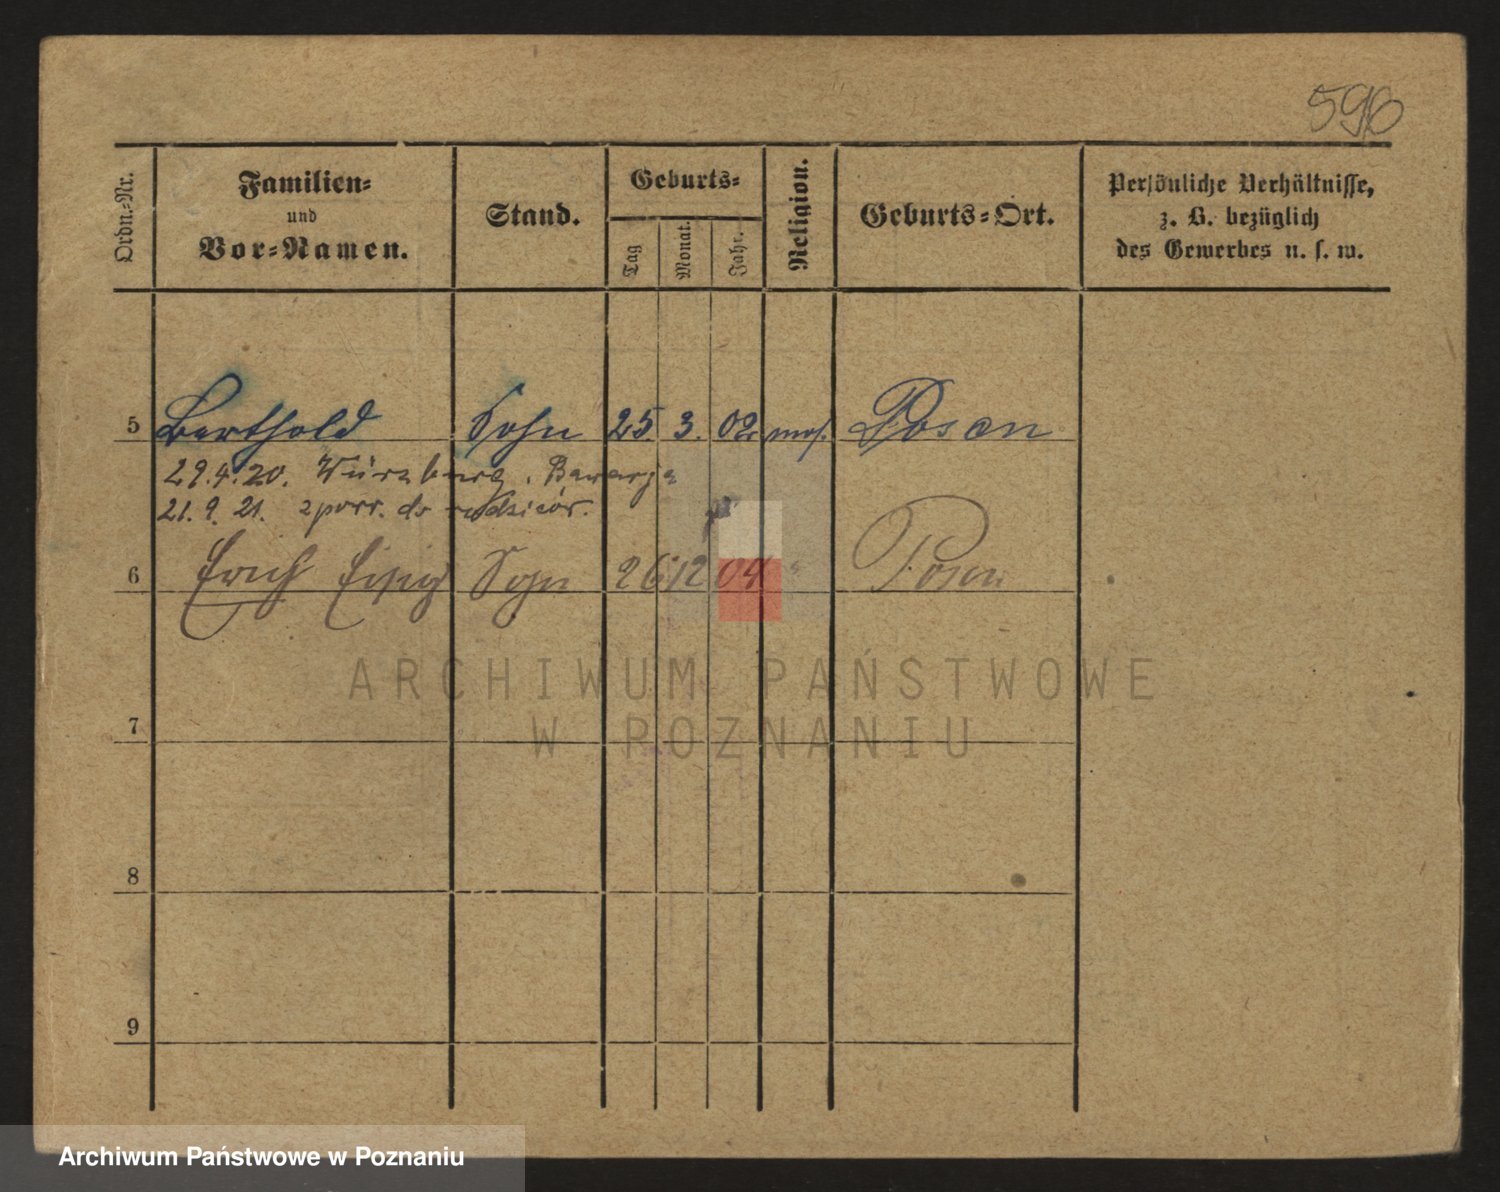 596
Ordn.-Nr.
Familien-
und
Vor-Namen.
Stand.
Geburts-
Tag
Monat.
Jahr.
Religion.
Geburts-Ort.
Persönliche Verhältnisse,
z. B. bezüglich
des Gewerbes u. s. w.
5 Berthold Sohn 25 3. 02 mos. Posen
29.4.20. Würzburg, Bawarja
21.9.21. z powr. do rodziców.
6 Erich Sohn 26 12 04 " Posen
ARCHIWUM PAŃSTWOWE
W POZNANIU
7
8
9
Archiwum Państwowe w Poznaniu